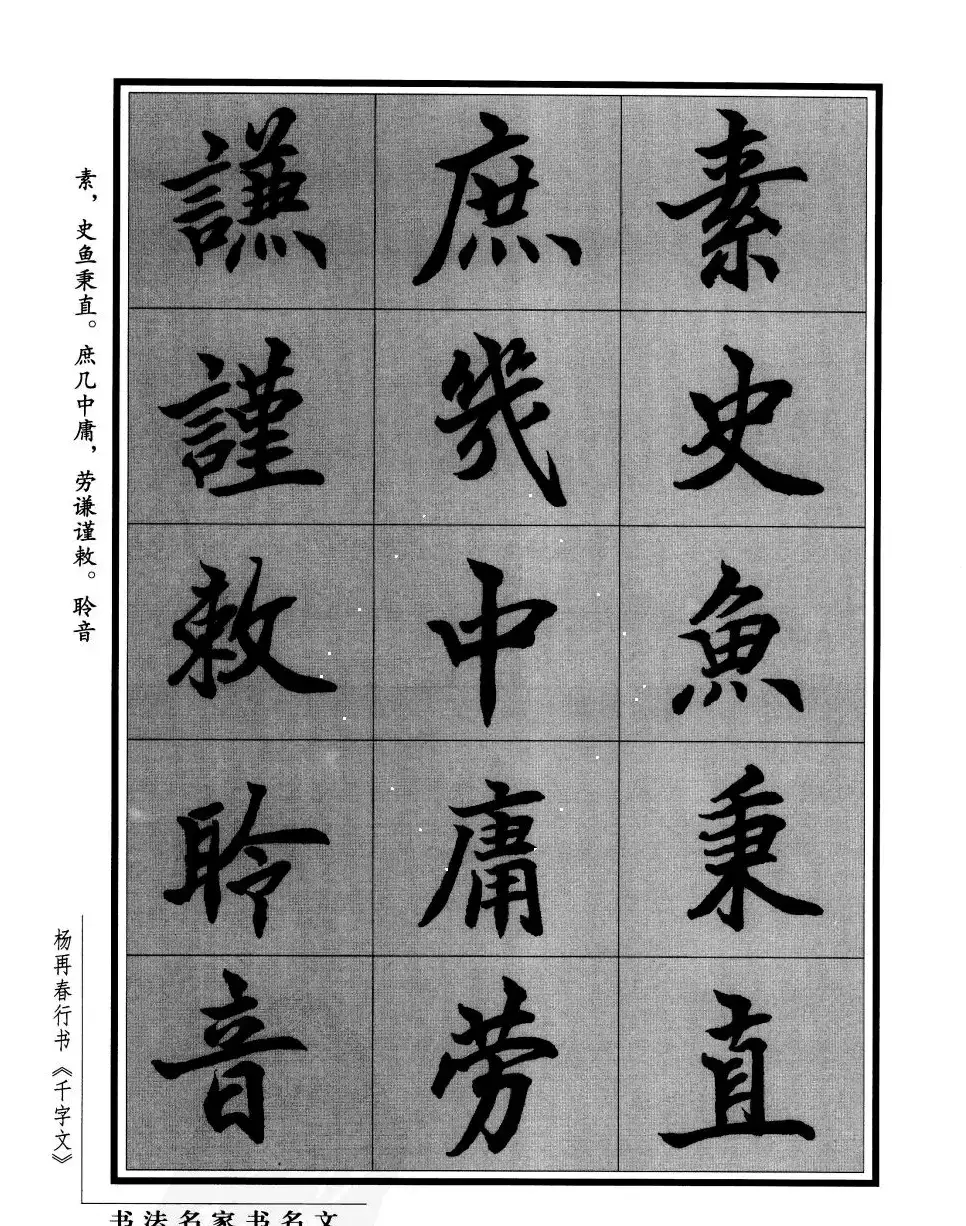 素史魚秉直
庶幾中庸劳
謙謹敕聆音
素，史鱼秉直。庶几中庸，劳谦谨敕。聆音
杨再春行书《千字文》
书法名家书名文